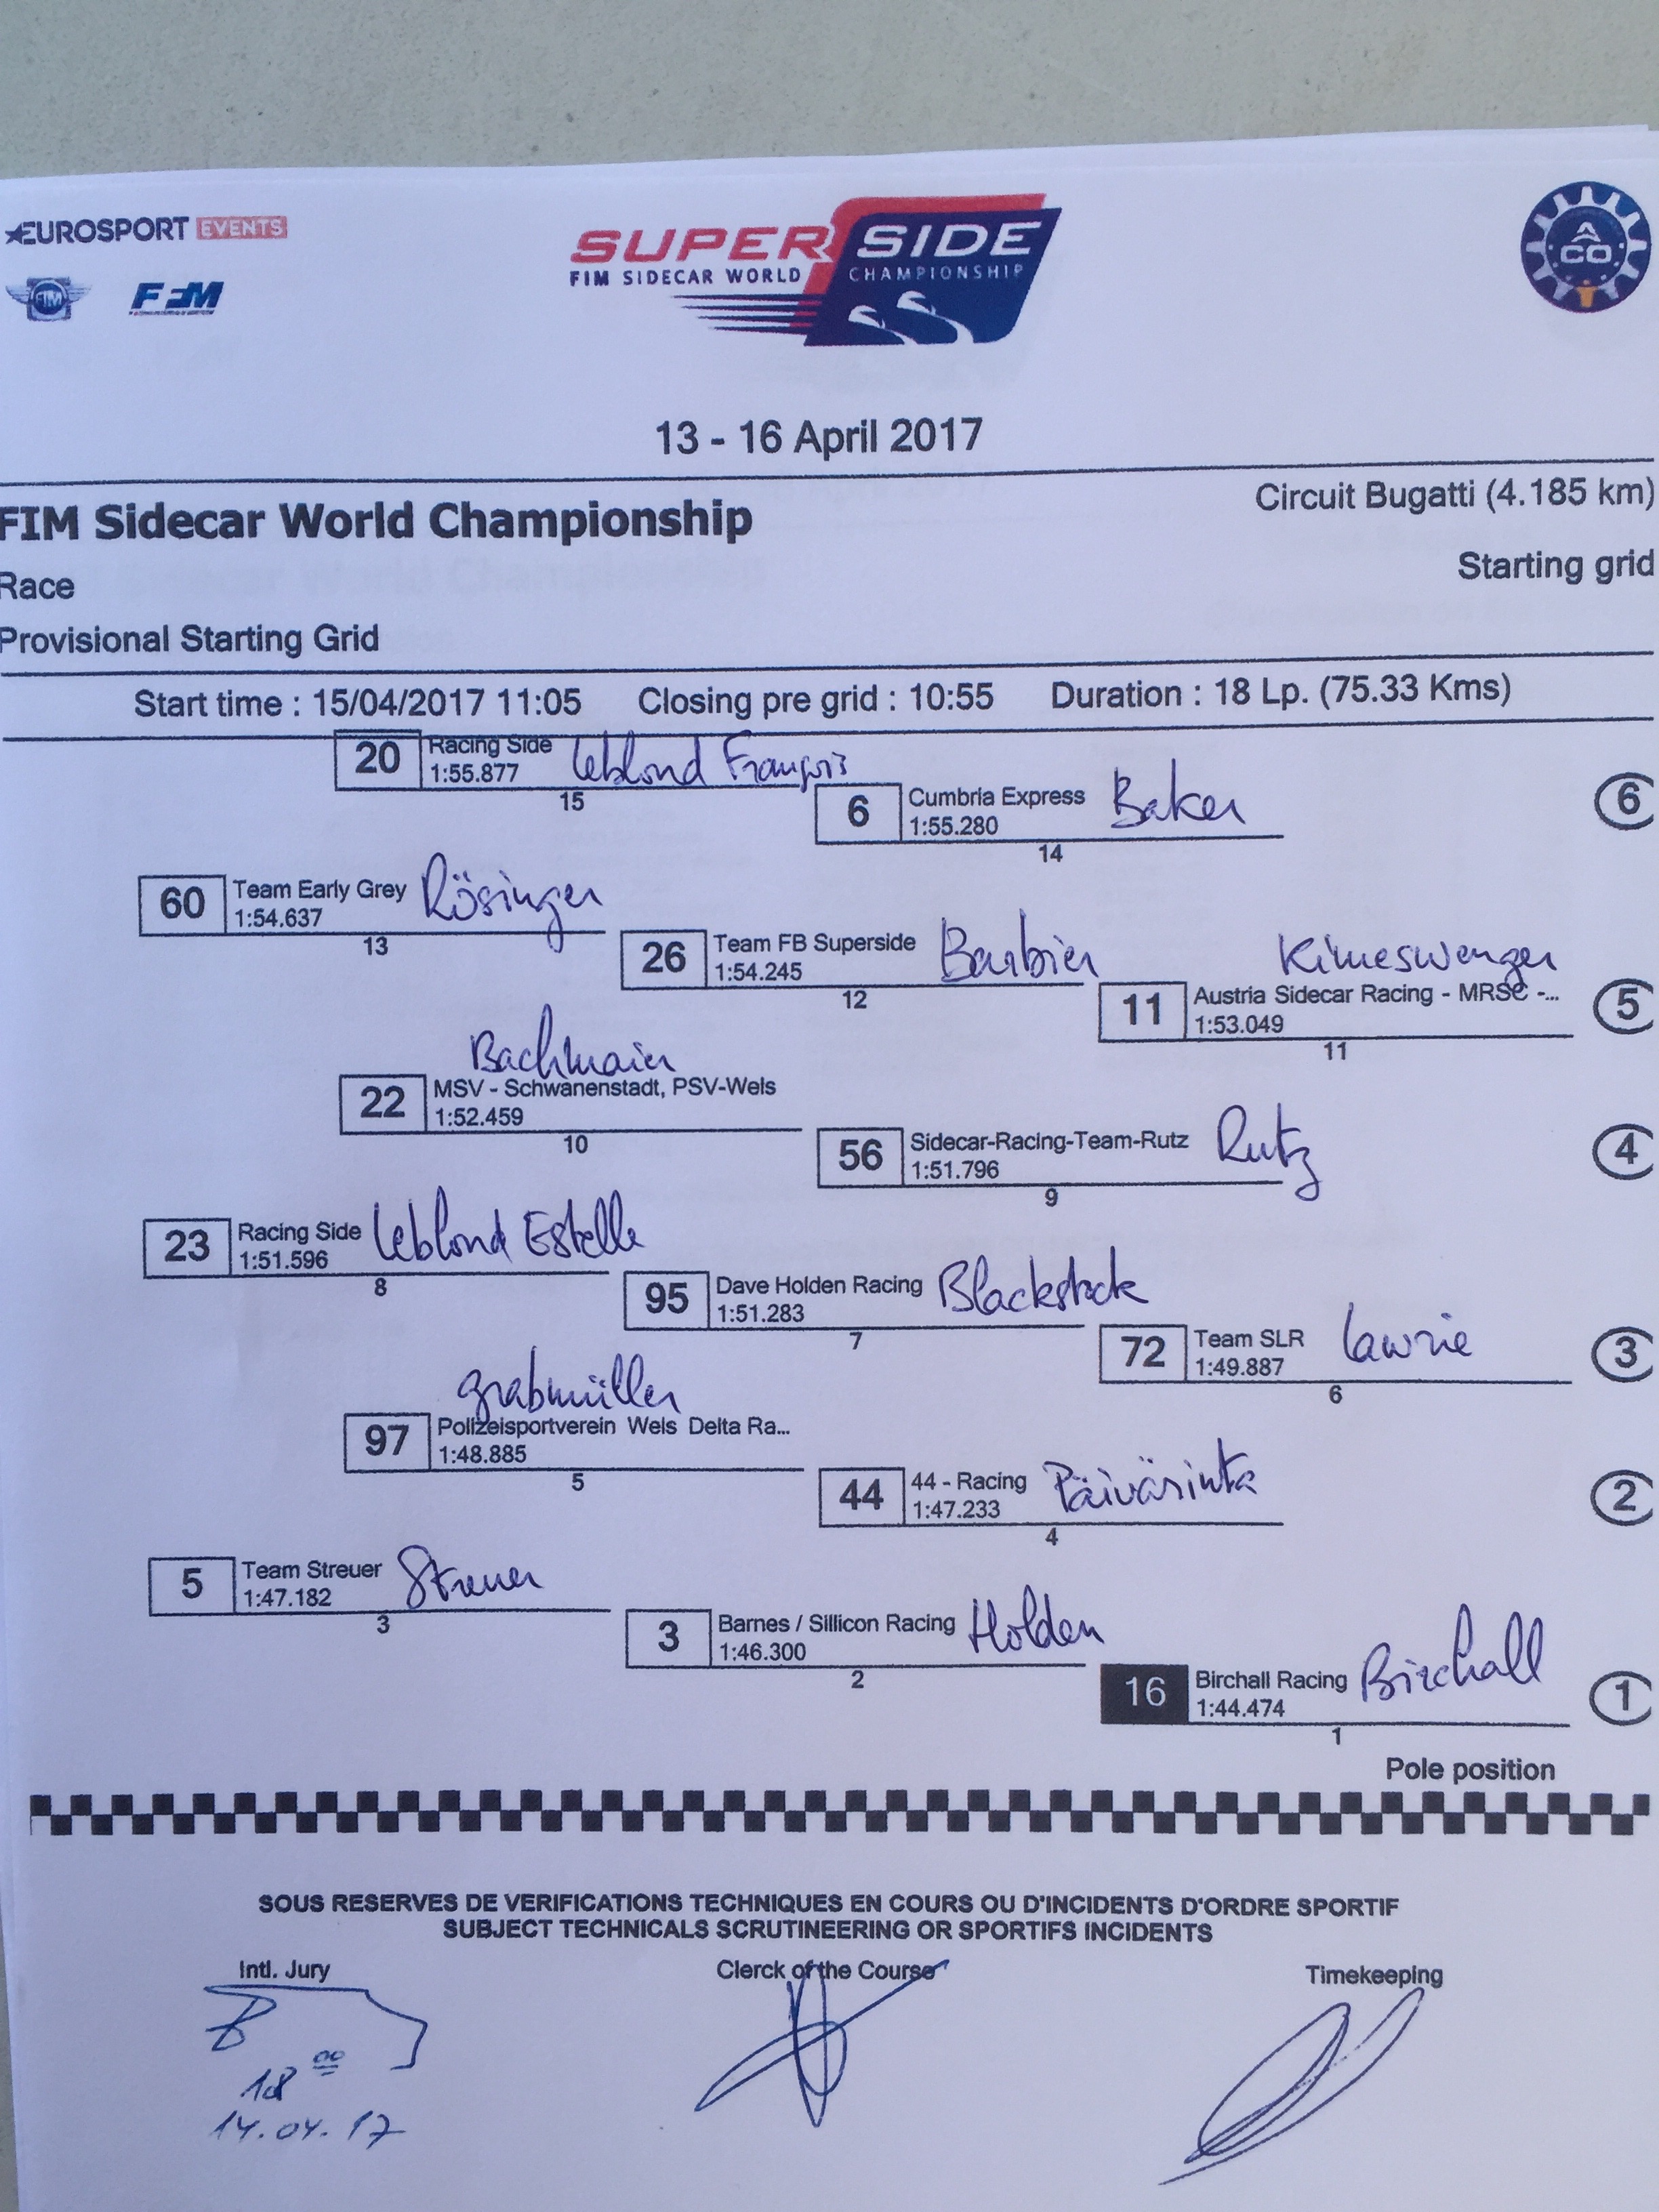 EUROSPORT EVENTS
FIM FFM
SUPERSIDE
FIM SIDECAR WORLD CHAMPIONSHIP
ACO
13 - 16 April 2017
FIM Sidecar World Championship
Circuit Bugatti (4.185 km)
Race
Starting grid
Provisional Starting Grid
Start time : 15/04/2017 11:05 Closing pre grid : 10:55 Duration : 18 Lp. (75.33 Kms)
20 Racing Side Leblond François
1:55.877
15
6 Cumbria Express Baker
1:55.280
14
6
60 Team Early Grey Rösinger
1:54.637
13
26 Team FB Superside Barbier
1:54.245
12
Kimeswenger
11 Austria Sidecar Racing - MRSC -...
1:53.049
11
5
Bachmaier
22 MSV - Schwanenstadt, PSV-Wels
1:52.459
10
56 Sidecar-Racing-Team-Rutz Rutz
1:51.796
9
4
23 Racing Side Leblond Estelle
1:51.596
8
95 Dave Holden Racing Blackstock
1:51.283
7
72 Team SLR Lawrie
1:49.887
6
3
Grabmüller
97 Polizeisportverein Wels Delta Ra...
1:48.885
5
44 44 - Racing Päivärinta
1:47.233
4
2
5 Team Streuer Streuer
1:47.182
3
3 Barnes / Sillicon Racing Holden
1:46.300
2
16 Birchall Racing Birchall
1:44.474
1
1
Pole position
SOUS RESERVES DE VERIFICATIONS TECHNIQUES EN COURS OU D'INCIDENTS D'ORDRE SPORTIF
SUBJECT TECHNICALS SCRUTINEERING OR SPORTIFS INCIDENTS
Intl. Jury Clerck of the Course Timekeeping
18 00
14.04.17